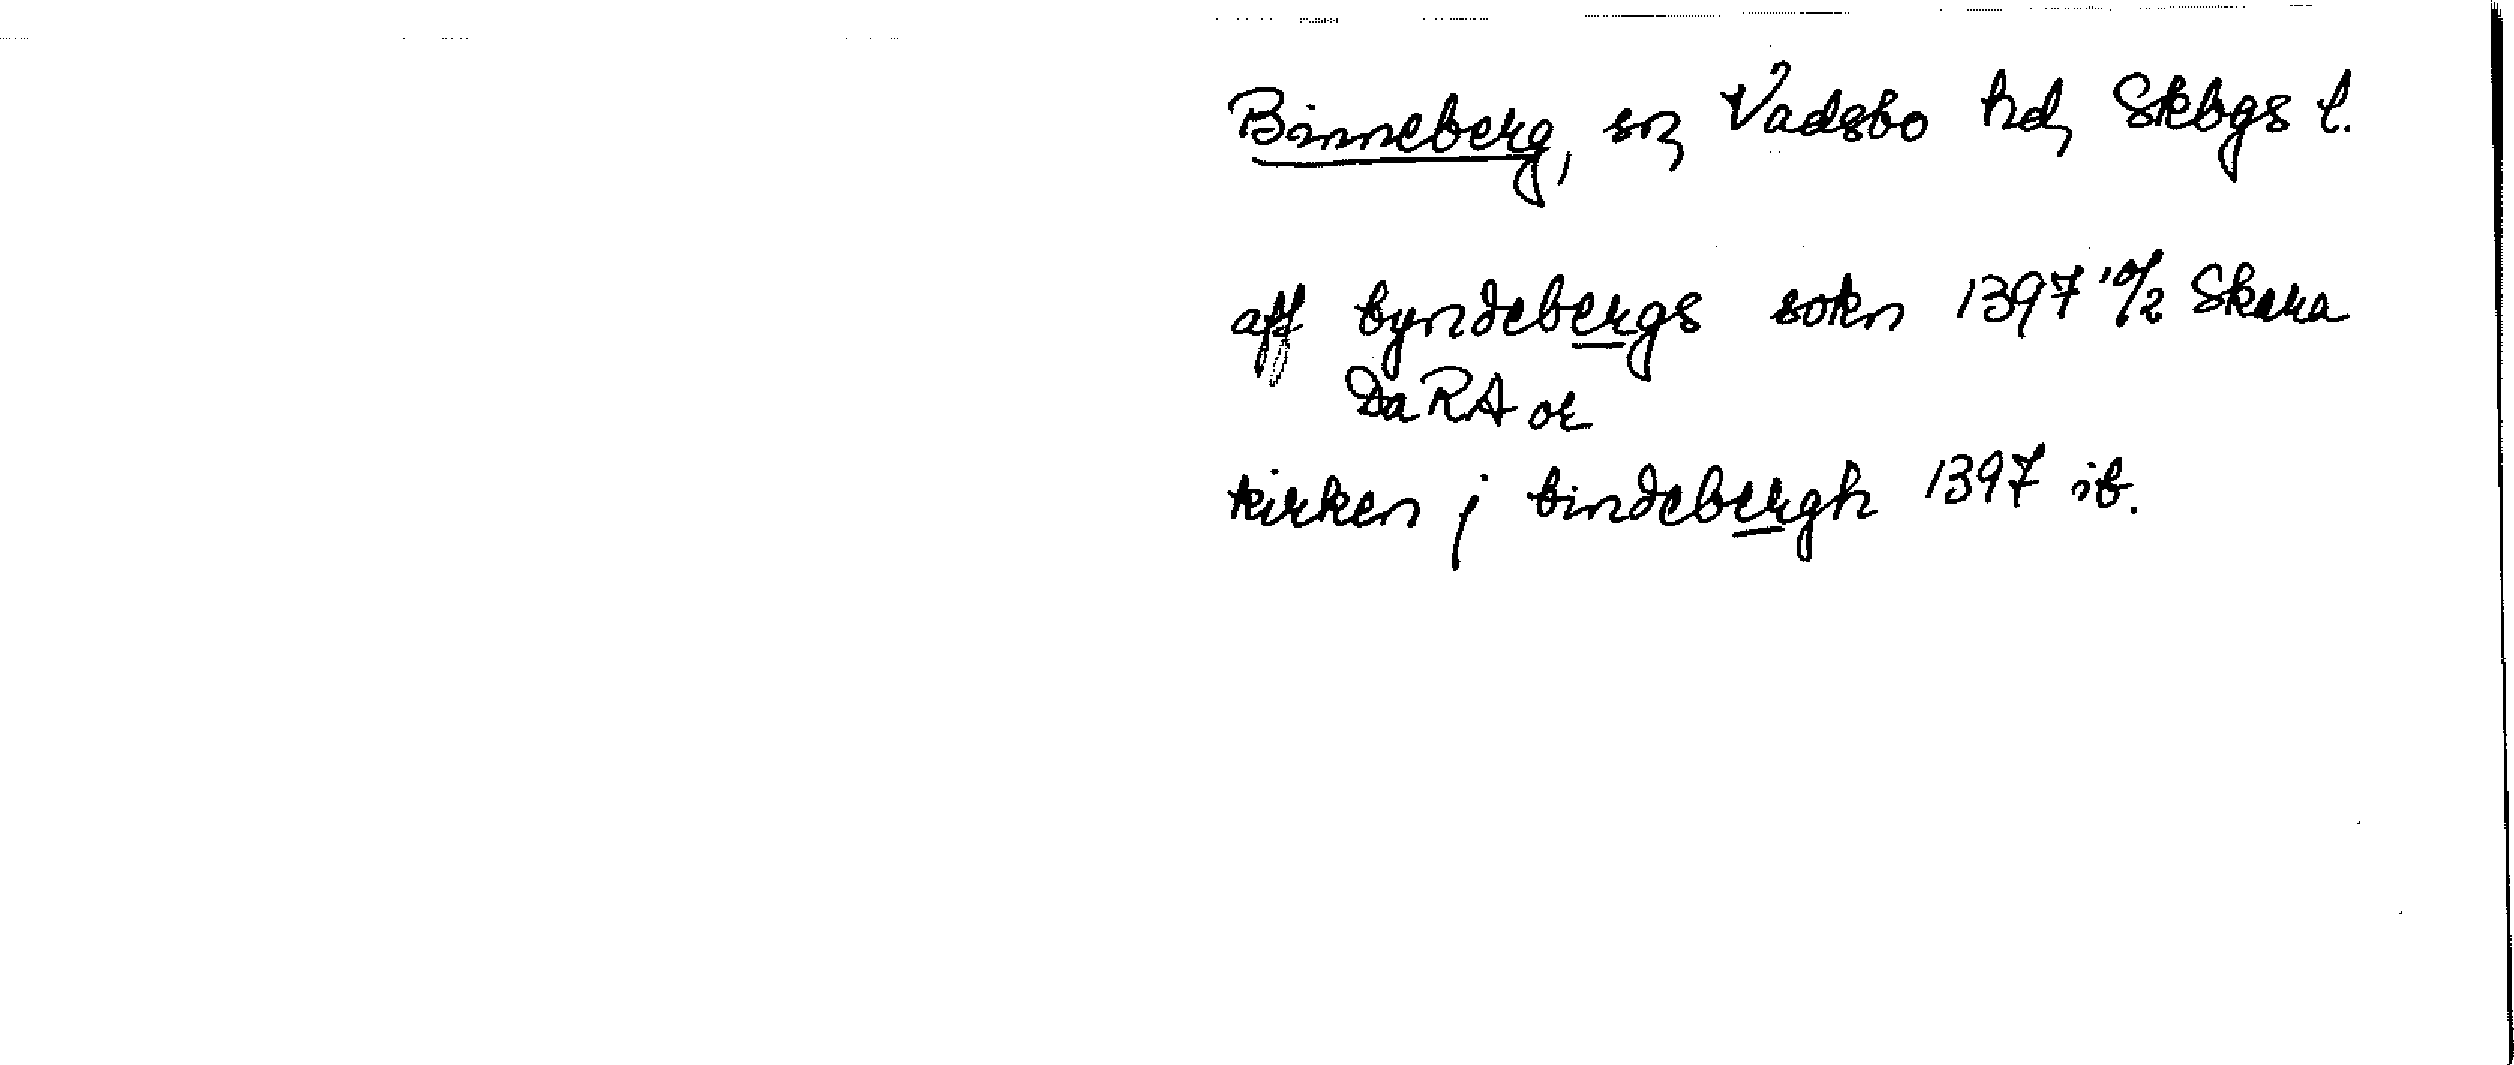 Binneberg, sn, Vadsbo hd, Skbgs l.
aff byndebergs sokn 1397 10/2 Skara
DaRA or
kirken j bindebergh 1397 ib.